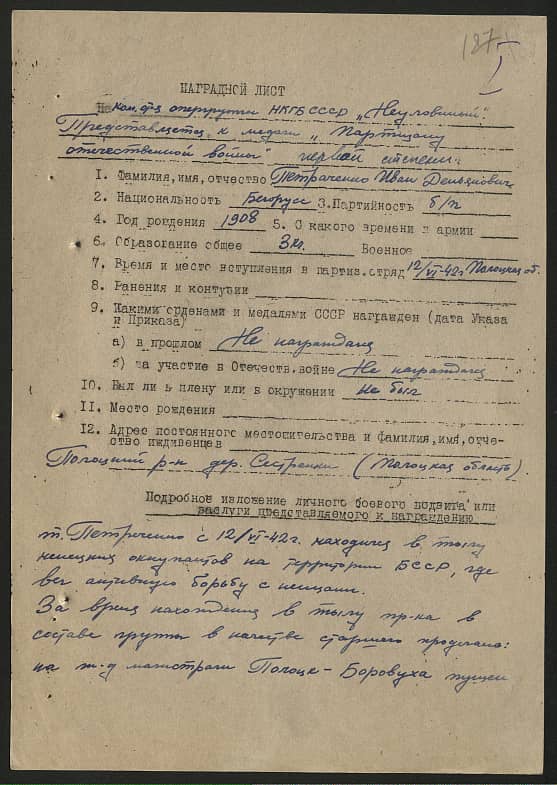 187
НАГРАДНОЙ ЛИСТ
На ком. отд. опергруппы НКГБ БССР „Неуловимый".
Представляется к медали „Партизану
отечественной войны" первой степени.
1. Фамилия,имя,отчество Петраченко Иван Демьянович
2. Национальность Белорусс 3.Партийность б/п
4. Год рождения 1908 5. С какого времени в армии
6. Образование общее 3 кл. Военное
7. Время и место вступления в партиз.отряд 12/VI-42г Полоцкая об.
8. Ранения и контузии
9. Какими орденами и медалями СССР награжден (дата Указа
и Приказа)
а) в прошлом Не награждался
б) за участие в Отечеств.войне Не награждался
10. Был ли в плену или в окружении не был
11. Место рождения
12. Адрес постоянного местожительства и фамилия,имя,отче-
ство иждивенцев
Полоцкий р-н дер. Сестренки (Полоцкая область).
Подробное изложение личного боевого подвига или
заслуги представляемого к награждению
т. Петраченко с 12/VI-42г. находился в тылу
немецких оккупантов на территории БССР, где
вел активную борьбу с немцами.
За время нахождения в тылу пр-ка в
составе группы в качестве старшего проделано:
на ж-д магистрали Полоцк - Боровуха пущен